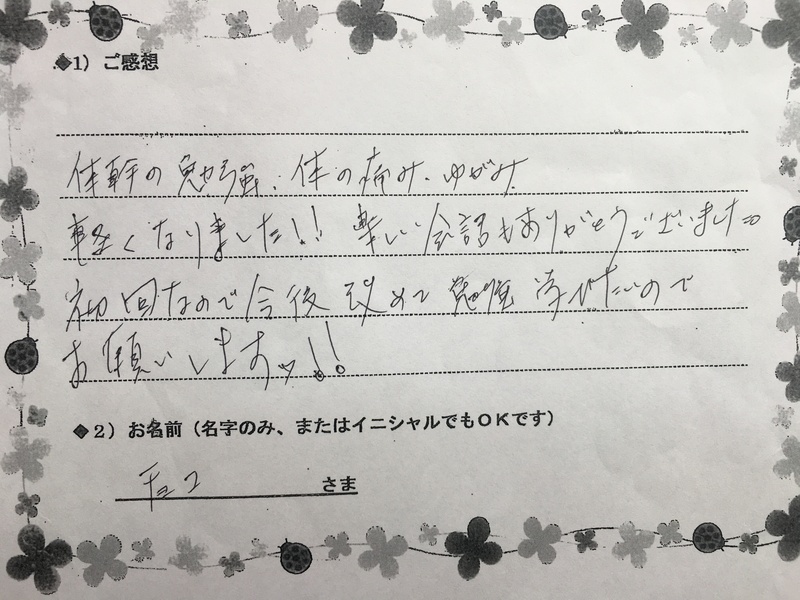 ◆1）ご感想
体幹の勉強、体の痛み、ゆがみ
軽くなりました!! 楽しい会話もありがとうございました。
初回なので今後改めて勉強学びたいので
お願いしますッ!!
◆2）お名前（名字のみ、またはイニシャルでもOKです）
チョコ さま